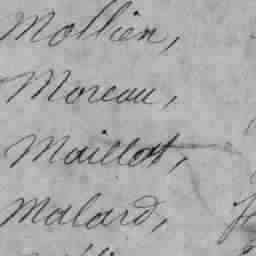 Mollien,
Moreau,
Maillot,
Malard,